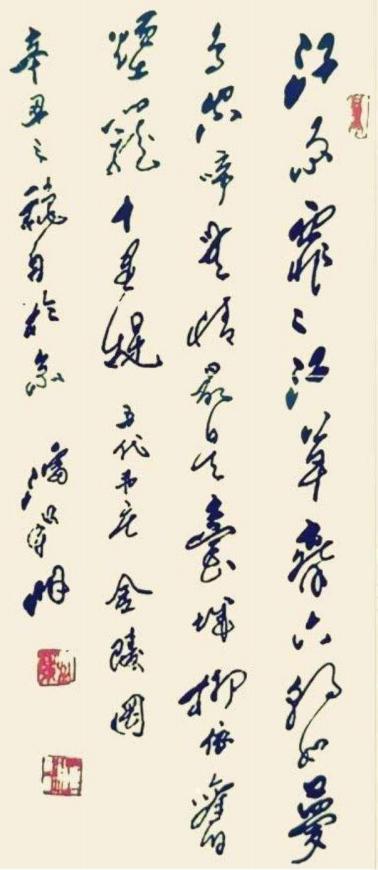 江雨霏〻江草齊六朝如夢
鳥空啼無情最是臺城柳依舊
煙籠十里堤 五代韋莊 金陵圖
辛丑之穐月於京 潘